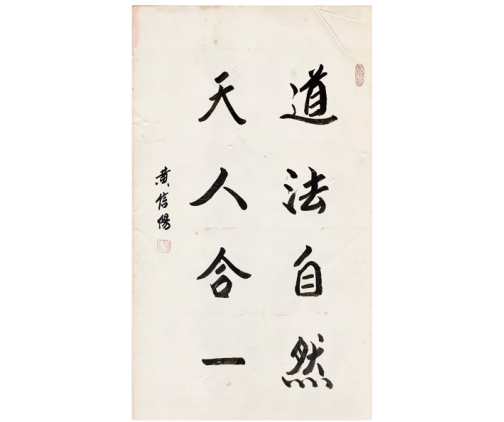 道法自然
天人合一
黄信陽